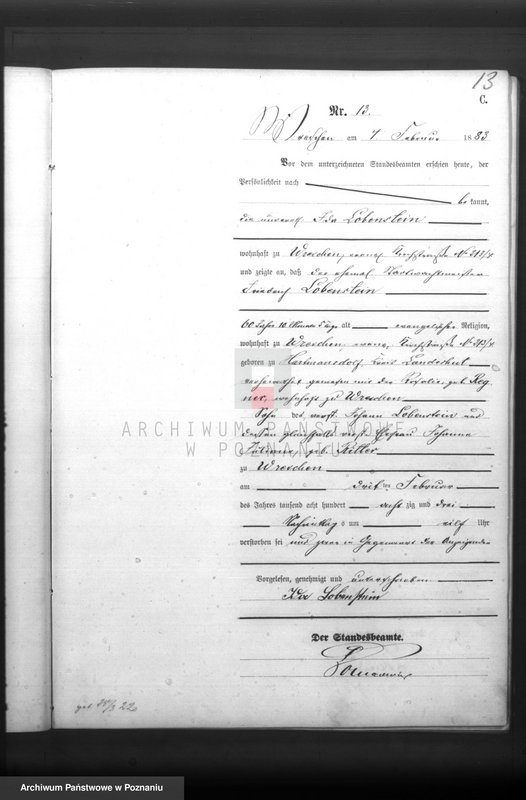 13
C.
Nr. 13.
Wreschen am 7 Februar 1883
Vor dem unterzeichneten Standesbeamten erschien heute, der
Persönlichkeit nach
be kannt,
die unverehl Ida Lobenstein
wohnhaft zu Wreschen, No 213/4
und zeigte an, daß der ehemal
Friedrich Lobenstein
60 Jahre 10 Monate alt evangelischer Religion,
wohnhaft zu Wreschen No 213/4
geboren zu Hartmansdorf, Kreis Landeshut
verheirathet gewesen mit der Rosalie, geb Rog
ner, wohnhaft zu Wreschen
Sohn des verst. Johann Lobenstein und
dessen gleichfalls verst. Ehefrau Johanna
Juliana, geb. Ritter
zu Wreschen
am dritten Februar
des Jahres tausend acht hundert acht zig und drei
Nachmittags um eilf Uhr
verstorben sei und zwar in Gegenwart der Anzeigenden
Vorgelesen, genehmigt und unterschrieben
Ida Lobenstein
Der Standesbeamte.
ARCHIWUM PAŃSTWOWE
W POZNANIU
Archiwum Państwowe w Poznaniu